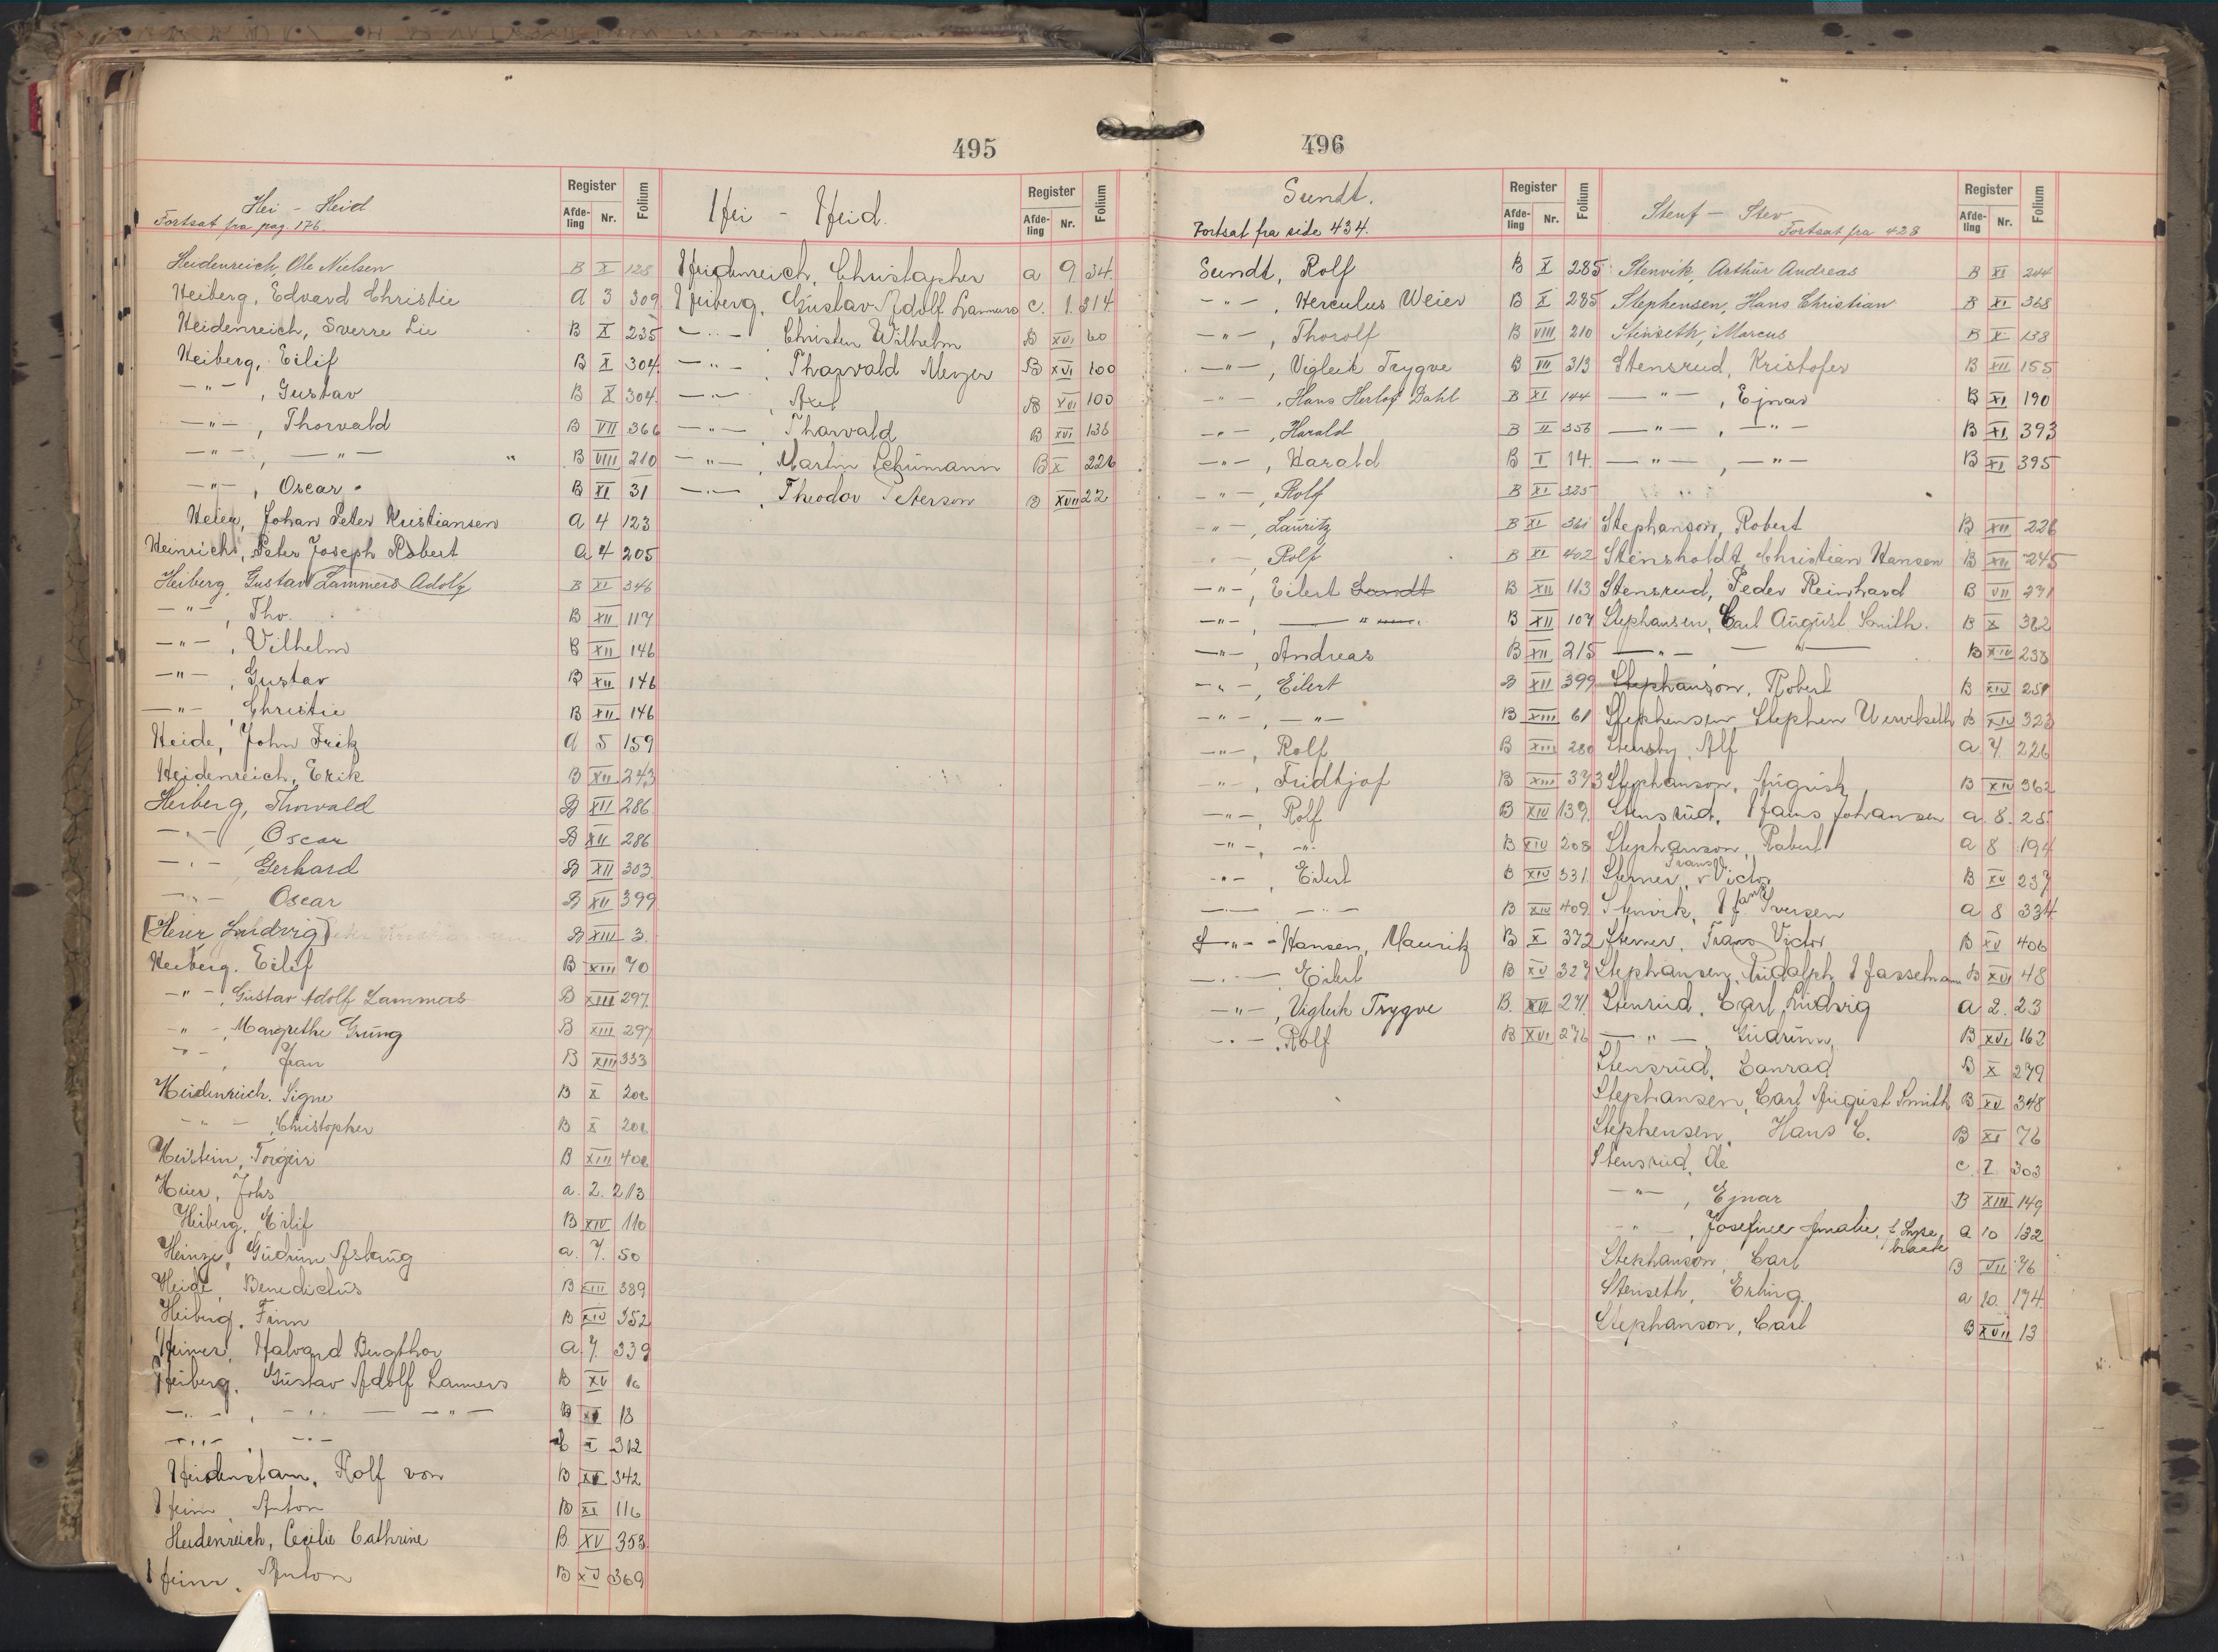 495
Hei - Heid
Fortsat fra pag. 176.
Register
Afde-
ling
Nr.
Folium
Heidenreich, Ole Nielsen B X 128
Heiberg, Edvard Christie A 3 309
Heidenreich, Sverre Lie B X 235
Heiberg, Eilif B X 304
—"—, Gustav B X 304
—"—, Thorvald B VII 366
—"—, —"— B VIII 210
—"—, Oscar B XI 31
Heier, Johan Peter Kristiansen A 4 123
Heinrichs, Peter Joseph Robert A 4 205
Heiberg, Gustav Lammers Adolf B XI 346
—"—, Tho. B XII 117
—"—, Vilhelm B XII 146
—"—, Gustav B XII 146
—"—, Christie B XII 146
Heide, John Frik A 5 159
Heidenreich, Erik B XII 243
Heiberg, Thorvald B XII 286
—"— Oscar B XII 286
—"— Gerhard B XII 303
—"— Oscar B XII 399
[Heier Ludvig] B XIII 3.
Heiberg. Eilif B XIII 70
—"—, Gustav Adolf Lammers B XIII 297
—"—, Margrethe Grung B XIII 297
—"—, Jean B XIII 333
Heidenreich. Signe B X 200
—"—, Christopher B X 200
Heistein, Torgeir B XIII 400
Heier, Johs a. 2. 213
Heiberg, Eilif B XIV 110
Heinze, Gudrun Aslaug a. 7. 50
Heide, Benedictus B XIII 389
Heiberg, Finn B XIV 352
Heimer, Halvard Bugthor a. 7. 339
Heiberg, Gustav Adolf Lammers B XV 16
—"—, —"— —"— B XV 18
—"—, —"— C I 312
Heidenstam, Rolf von B XV 342
Heim, Anton B XI 116
Heidenreich, Cecilie Cathrine B. XV 353
Heim, Anton B XV 369
Hei - Heid.
Register
Afde-
ling
Nr.
Folium
Heidenreich, Christopher a 9 34.
Heiberg, Gustav Adolf Lammers C. 1. 314
—"—, Christen Wilhelm B XVI 60
—"—, Thorvald Meyer B XVI 100
—"—, Axel B XVI 100
—"—, Thorvald B XVI 136
—"—, Martin Schumann B X 226
—"—, Theodor Peterson B XVII 22
496
Sundt.
Fortsat fra side 434.
Register
Afde-
ling
Nr.
Folium
Sundt, Rolf B X 285
—"—, Herculus Weier B X 285
—"—, Thorolf B VIII 210
—"—, Vigleik Trygve B VII 313
—"—, Hans Herlof Dahl B XI 144
—"—, Harald B II 356
—"—, Harald B I 14.
—"—, Rolf B XI 325
—"—, Lauritz B XI 361
—"—, Rolf B XI 402
—"—, Eilert Sundt B XII 113
—"—, —"— B XII 107
—"—, Andreas B XII 215
—"—, Eilert B XII 399
—"—, —"— B XIII 61
—"—, Rolf B XIII 280
—"—, Fridtjof B XIII 373
—"—, Rolf B XIV 139.
—"—, —"— B XIV 208
—"—, Eilert B XIV 331
—"— —"— B XIV 409
—"— Hansen, Mauritz B X 372
—"—, Eilert B XV 327
—"—, Vigleik Trygve B. XVI 271
—"—, Rolf B XVI 276
Stenf - Stev
Fortsat fra 428
Register
Afde-
ling
Nr.
Folium
Stenvik, Arthur Andreas B XI 244
Stephensen, Hans Christian B XI 368
Steinseth, Marcus B X 138
Stensrud, Kristofer B XII 155
—"—, Ejnar B XI 190
—"—, —"— B XI 393
—"—, —"— B XI 395
Stephanson, Robert B XII 226
Stensholdt, Christian Hansen B XII 245
Stensrud, Peder Reinhard B VII 271
Stephansen, Carl August Smith. B X 382
—"—, —"— B XIV 238
Stephanson, Robert B XIV 251
Stephensen Stephen B XIV 322
Stensby, Alf a 7 226
Stephanson, August B XIV 362
Stensrud, Hans Johansen a. 8. 25
Stephanson, Robert a 8 194
Sterner, Frans Victor B XV 237
Stenvik, Hans Iversen a 8 334
Sterner, Frans Victor B XV 406
Stephansen, Rudolph Hasselmann B XVI 48
Stensrud, Carl Ludvig a 2. 23
—"— Gudrun, B XVI 162
Stensrud, Conrad B X 279
Stephansen, Carl August Smith B XV 348
Stephensen, Hans C. B XI 76
Stensrud, Ole C. I. 303
—"—, Ejnar B XIII 149
—"—, Josefine Amalie, f. Lysebraate a 10 132
Stephanson, Carl B VII 76
Stenseth, Erling. a 10. 174.
Stephanson, Carl B XVII 13